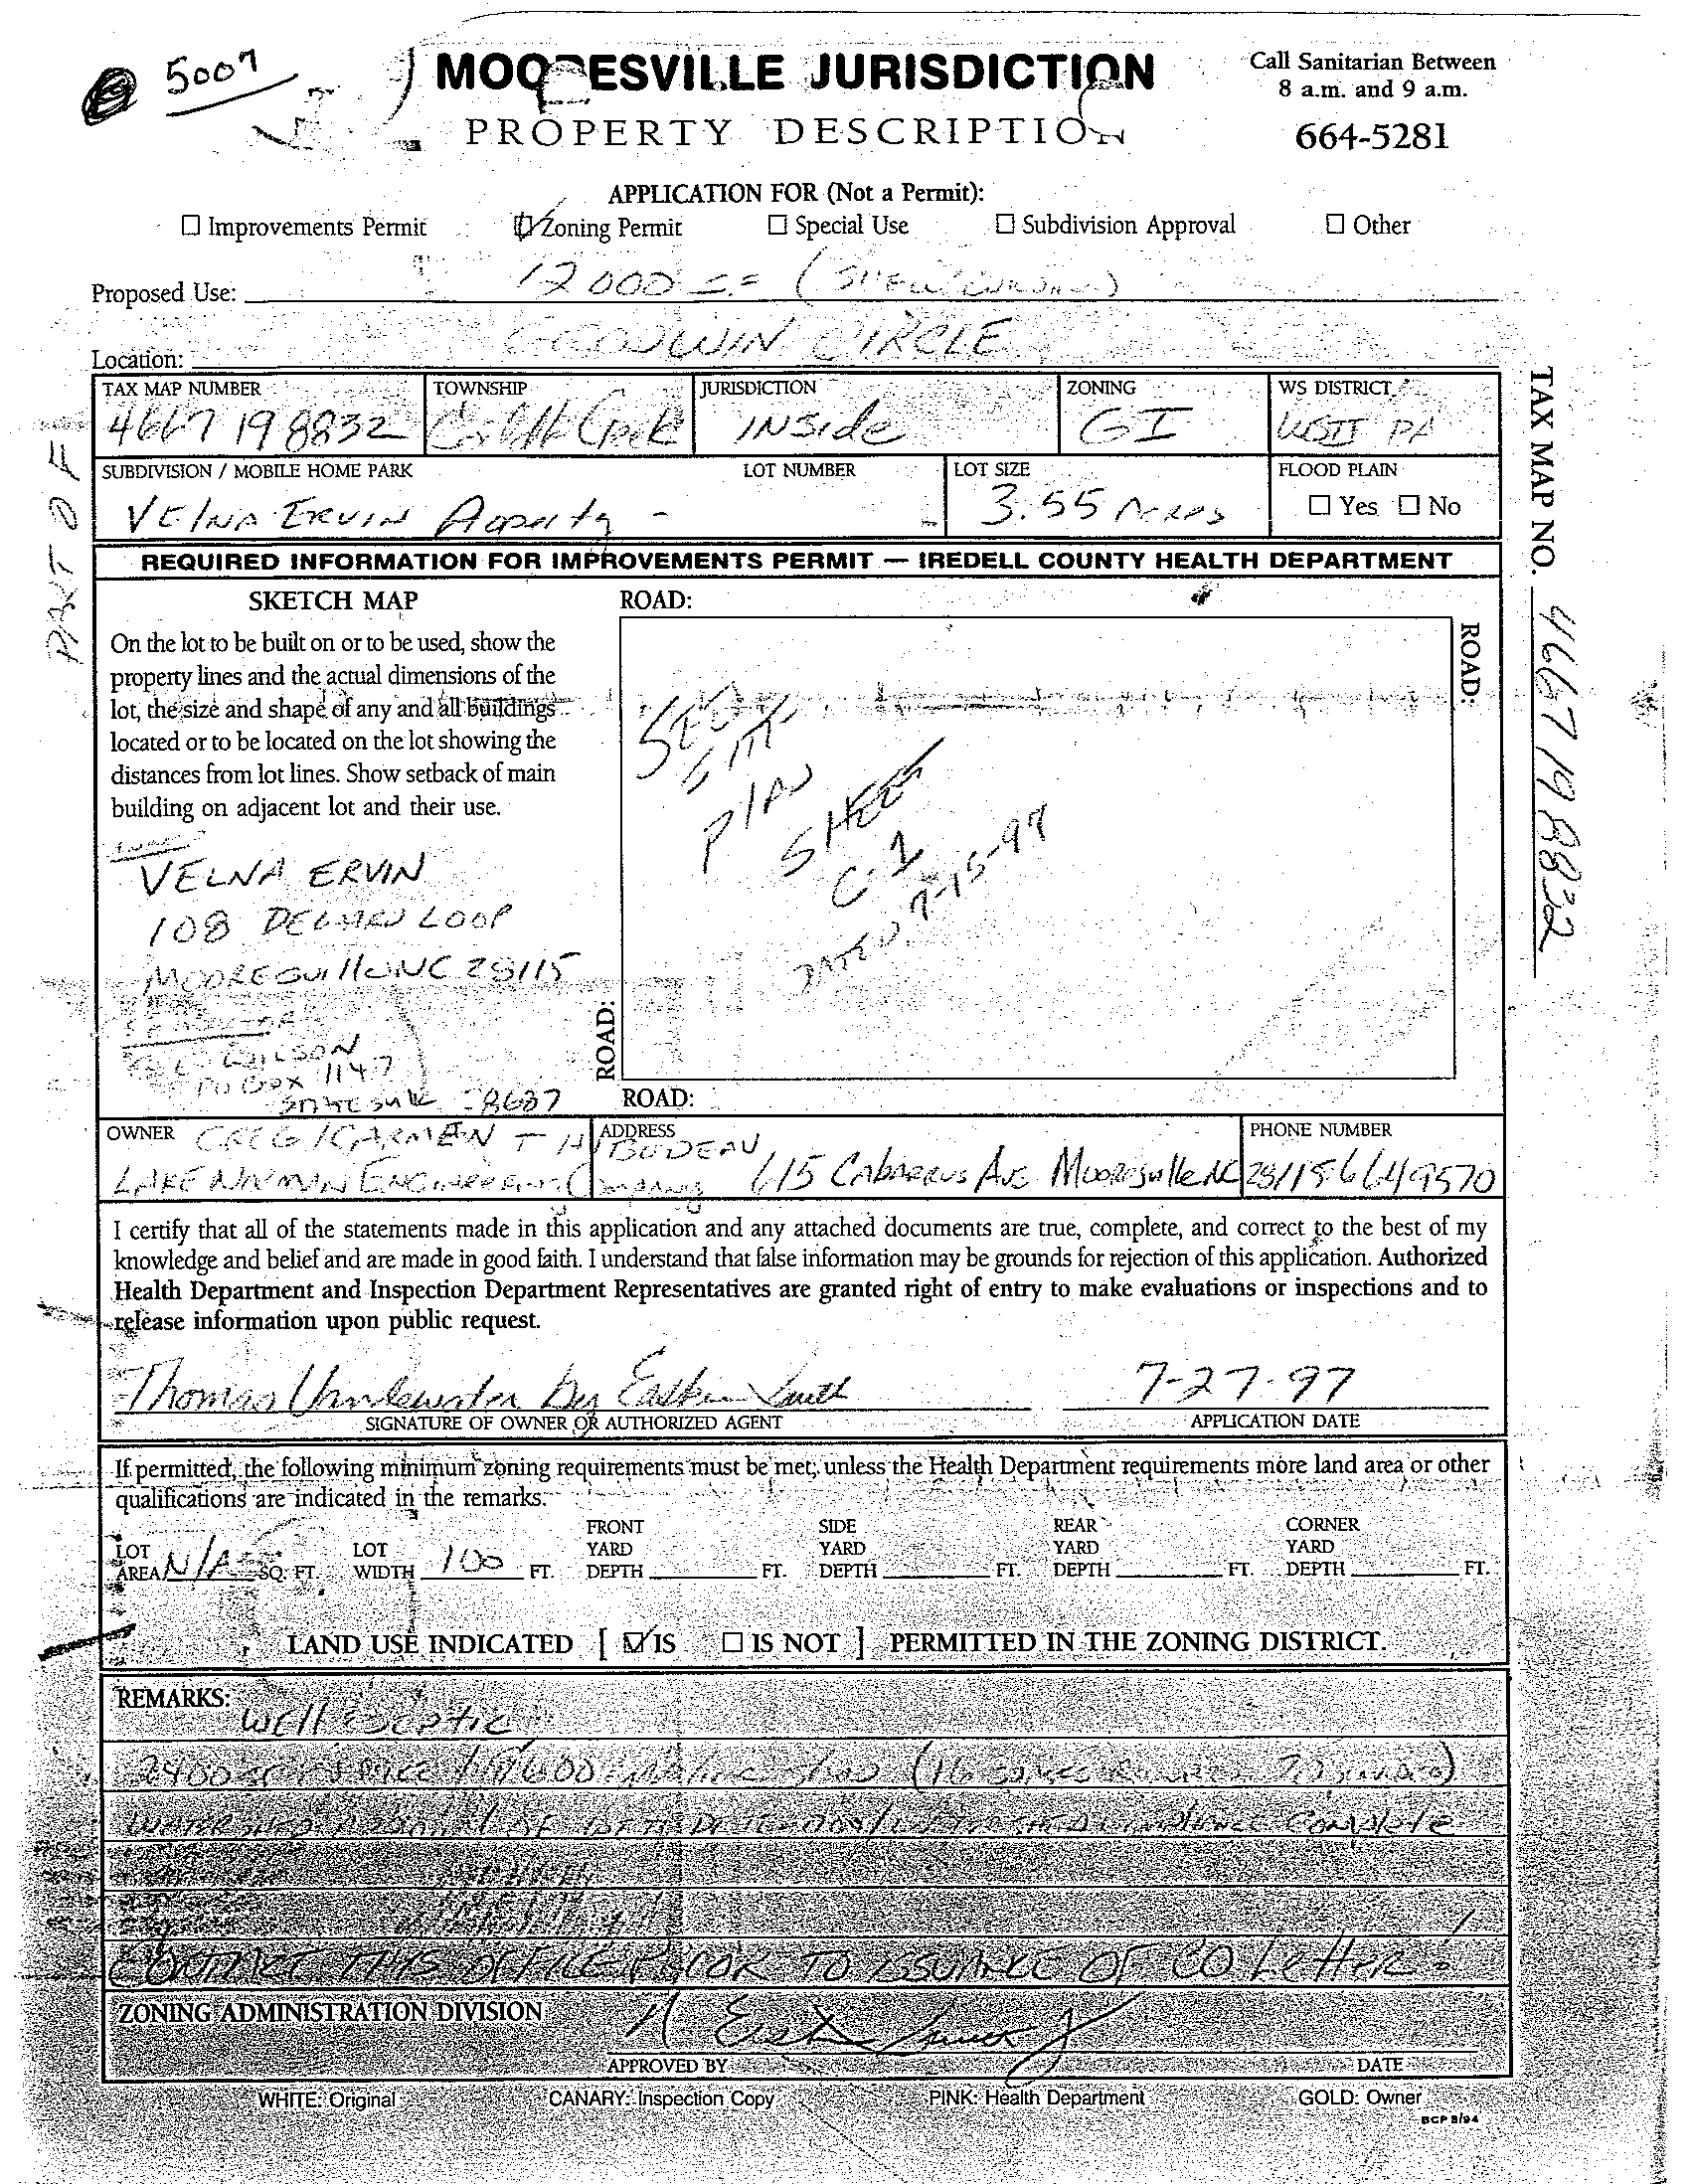 5007
MOORESVILLE JURISDICTION
PROPERTY DESCRIPTION
Call Sanitarian Between
8 a.m. and 9 a.m.
664-5281
APPLICATION FOR (Not a Permit):
☐ Improvements Permit ☑ Zoning Permit ☐ Special Use ☐ Subdivision Approval ☐ Other
Proposed Use: 12000 S.F (
Location: GOODWIN CIRCLE
TAX MAP NUMBER TOWNSHIP JURISDICTION ZONING WS DISTRICT
4667 19 8832 INSide GI WSII PA
SUBDIVISION / MOBILE HOME PARK LOT NUMBER LOT SIZE FLOOD PLAIN
VElNA ERVIN 3.55 Acres ☐ Yes ☐ No
PART OF
TAX MAP NO. 4667 19 8832
REQUIRED INFORMATION FOR IMPROVEMENTS PERMIT — IREDELL COUNTY HEALTH DEPARTMENT
SKETCH MAP
On the lot to be built on or to be used, show the
property lines and the actual dimensions of the
lot, the size and shape of any and all buildings
located or to be located on the lot showing the
distances from lot lines. Show setback of main
building on adjacent lot and their use.
VELNA ERVIN
108 LOOP
MOORESVillE NC 28115
WILSON
PO BOX 1147
8687
ROAD:
ROAD:
ROAD:
ROAD:
SEE
SITE
PlAN
SHEET
C-1
DATED 7-15-97
OWNER ADDRESS PHONE NUMBER
CREG / CARMEN THIBODEAU
LAKE NORMAN ENGINEERING COMPANY 615 CABARRUS AVE MOORESvillE NC 28115 6649570
I certify that all of the statements made in this application and any attached documents are true, complete, and correct to the best of my
knowledge and belief and are made in good faith. I understand that false information may be grounds for rejection of this application. Authorized
Health Department and Inspection Department Representatives are granted right of entry to make evaluations or inspections and to
release information upon public request.
Thomas by 7-27-97
SIGNATURE OF OWNER OR AUTHORIZED AGENT APPLICATION DATE
If permitted, the following minimum zoning requirements must be met, unless the Health Department requirements more land area or other
qualifications are indicated in the remarks.
LOT AREA N/A SQ. FT. LOT WIDTH 100 FT. FRONT YARD DEPTH FT. SIDE YARD DEPTH FT. REAR YARD DEPTH FT. CORNER YARD DEPTH FT.
LAND USE INDICATED [ ☑ IS ☐ IS NOT ] PERMITTED IN THE ZONING DISTRICT.
REMARKS: Well & Septic
2400 SF OFFICE / 9600 (16
WATERSHED COMPlete
CONTACT THIS OFFICE PRIOR TO ISSUANCE OF CO LettER!
ZONING ADMINISTRATION DIVISION
APPROVED BY DATE
WHITE: Original CANARY: Inspection Copy PINK: Health Department GOLD: Owner
BCP 8/94